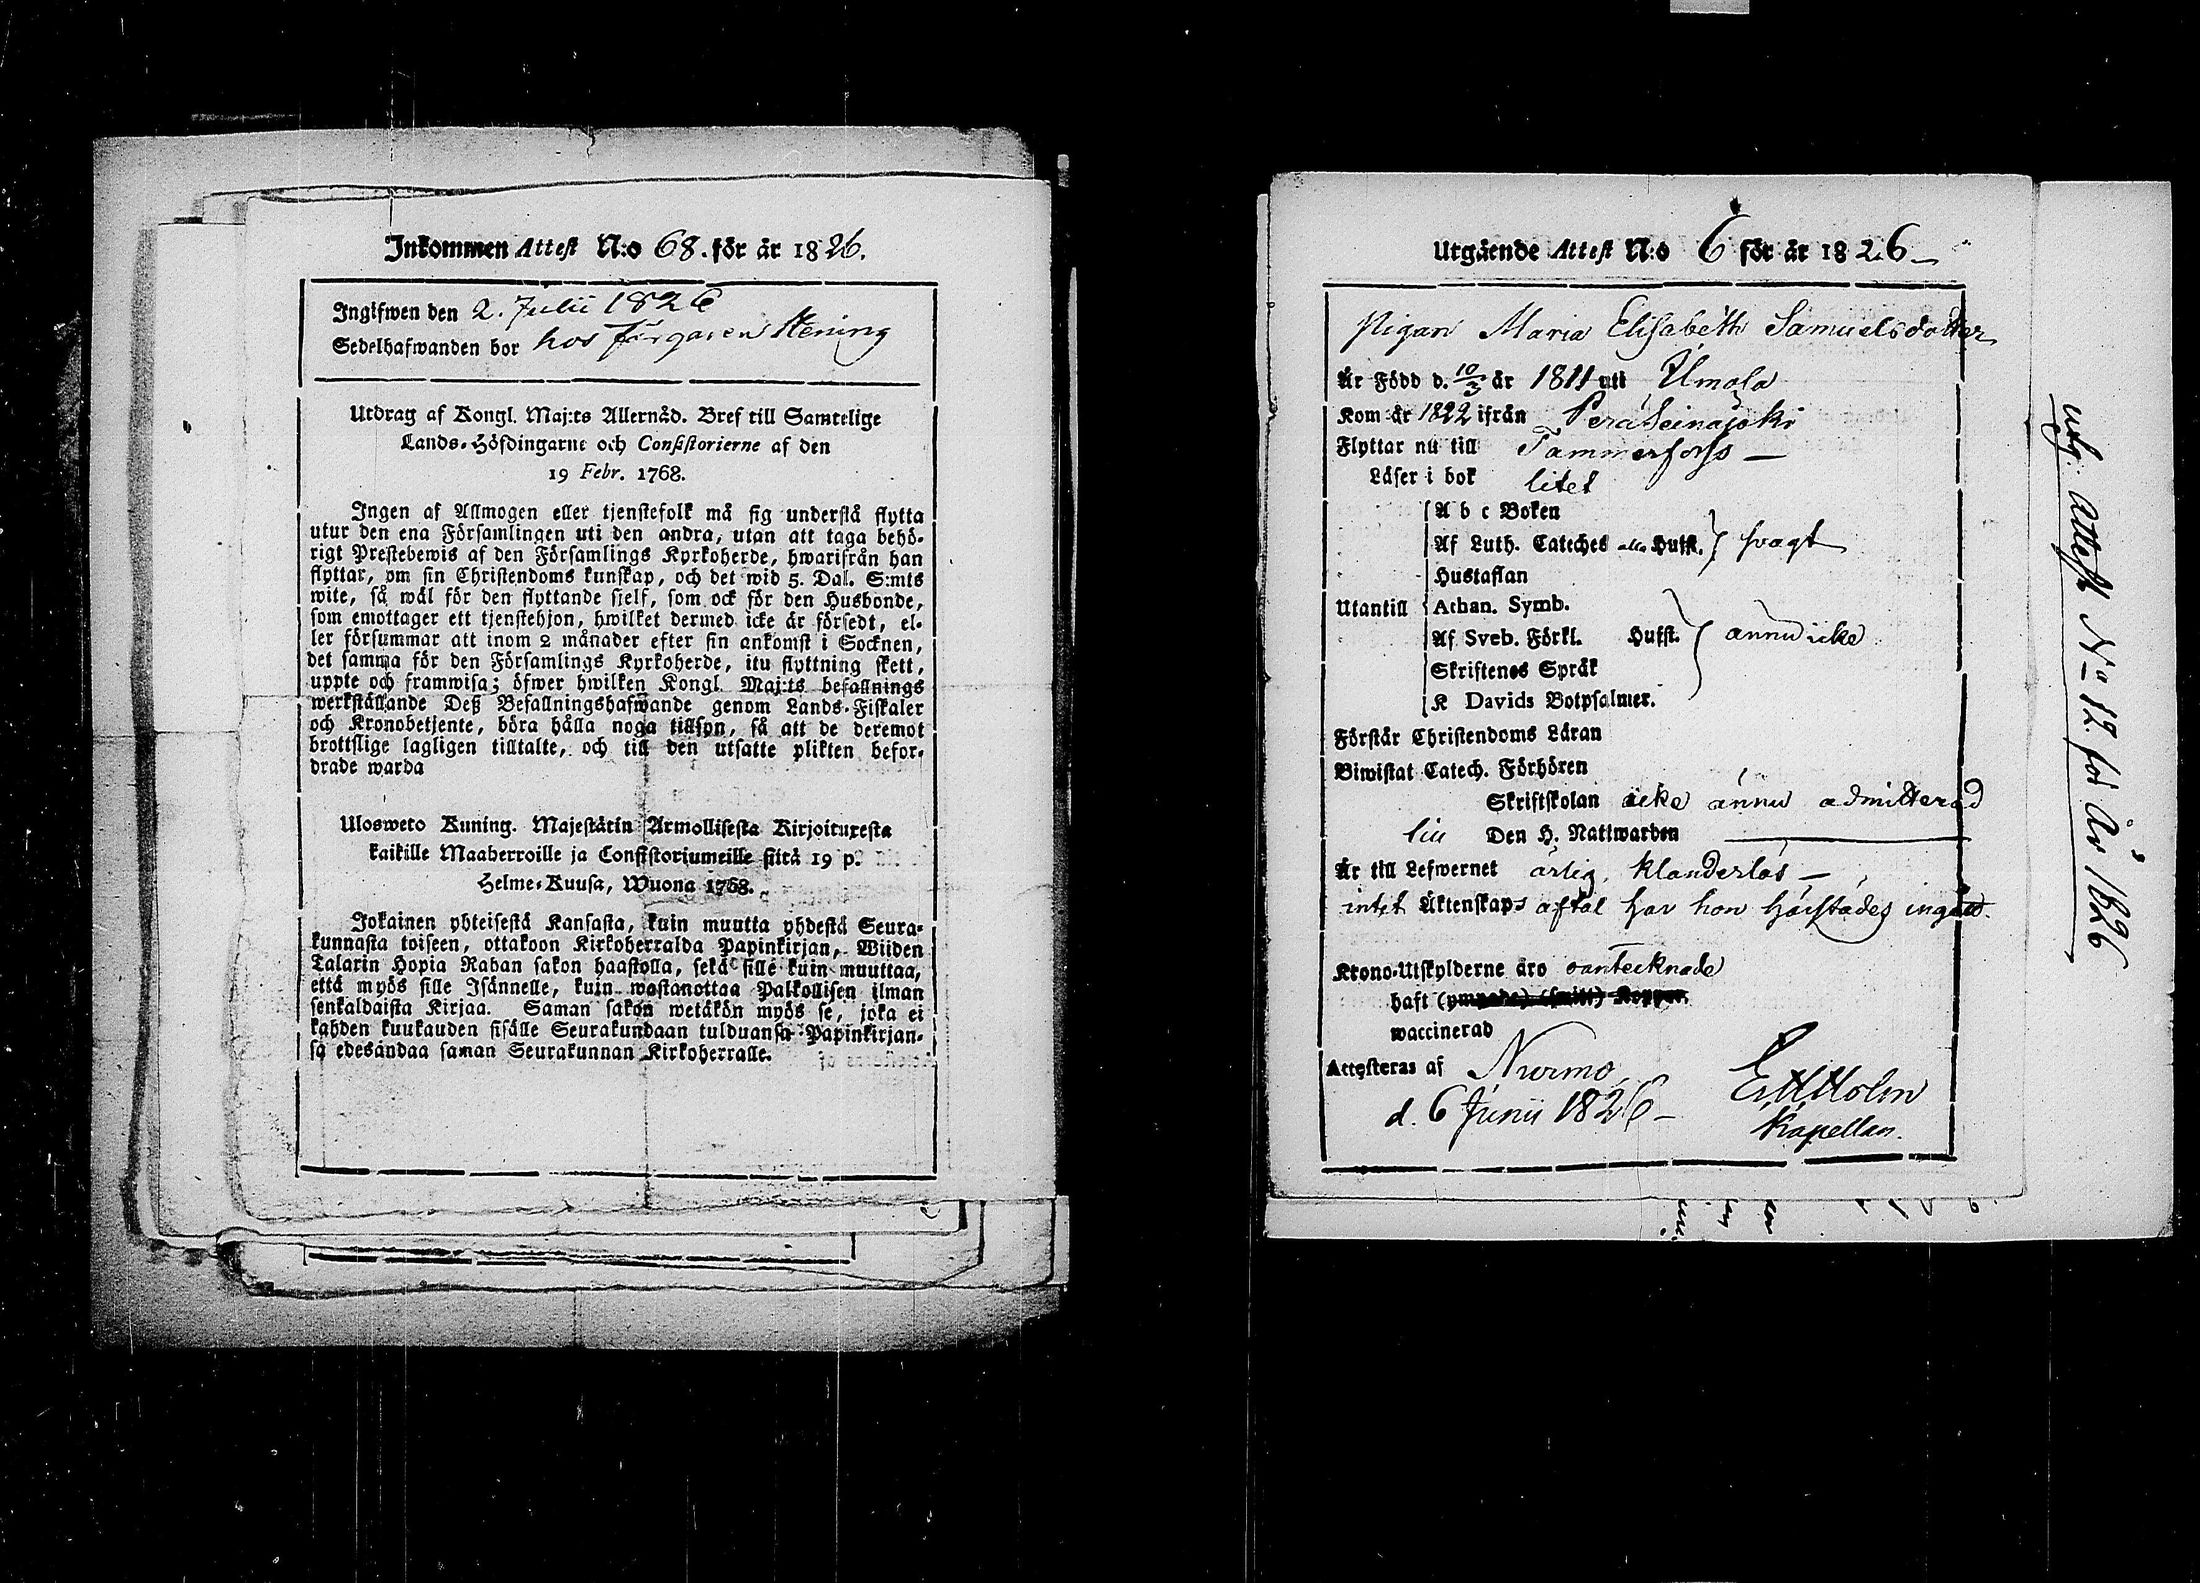 Inkommen Attest N:o 68. för år 1826.
Ingifwen den 2. Julii 1826
Sedelhafwanden bor hos Färgaren Hening
Utdrag af Kongl. Maj:ts Allernåd. Bref till Samtelige
Lands-Höfdingarne och Consistorierne af den
19 Febr. 1768.
Ingen af Allmogen eller tjenstefolk må sig understå flytta
utur den ena Församlingen uti den andra, utan att taga behö-
rigt Prestebewis af den Församlings Kyrkoherde, hwarifrån han
flyttar, om sin Christendoms kunskap, och det wid 5. Dal. S:mts
wite, så wäl för den flyttande sjelf, som ock för den Husbonde,
som emottager ett tjenstehjon, hwilket dermed icke är försedt, el-
ler försummar att inom 2 månader efter sin ankomst i Socknen,
det samma för den Församlings Kyrkoherde, itu flyttning skett,
uppte och framwisa; öfwer hwilken Kongl. Maj:ts befallnings
werkställande Deß Befallningshafwande genom Lands-Fiskaler
och Kronobetjente, böra hålla noga tillsyn, så att de deremot
brottslige lagligen tilltalte, och till den utsatte plikten befor-
drade warda
Ulosweto Kuning. Majestätin Armollisesta Kirjoituxesta
kaikille Maaherroille ja Consistoriumeille siitä 19 p.
Helme-Kuusa, Wuona 1768.
Jokainen yhteisestä Kansasta, kuin muutta yhdestä Seura-
kunnasta toiseen, ottakoon Kirkoherralda Papinkirjan, Wiiden
Talarin Hopia Rahan sakon haastolla, sekä sille kuin muuttaa,
että myös sille Isännelle, kuin wastanottaa Palkollisen ilman
senkaldaista Kirjaa. Saman sakon wetäkön myös se, joka ei
kahden kuukauden sisälle Seurakundaan tulduansa Papinkirjan-
sa edesandaa saman Seurakunnan Kirkoherralle.
Utgående Attest N:o 6 för år 1826
Pigan Maria Elisabeth Samuelsdotter
Är Född d. 10/3 år 1811 uti Ilmola
Kom år 1822 ifrån Peräseinäjoki
Flyttar nu till Tammerfors
Läser i bok litet
A b c Boken
Af Luth. Cateches alla Hufst. svagt
Hustaflan
Utantill Athan. Symb.
Af Sveb. Förkl. Hufst. ännu icke
Skriftenes Språk
K Davids Botpsalmer.
Förstår Christendoms Läran
Biwistat Catech. Förhören
Skriftskolan icke ännu admitterad
Den H. Nattwarden
Är till Lefwernet ärlig, klanderlös
intet Äktenskaps aftal har hon härstädes ingått.
Krono-Utskylderne äro antecknade
haft (ympade) (smitt) Koppor.
waccinerad
Attesteras af Nurmo
d. 6 Junii 1826 Kapellan.
utg. Attest No 12. för År 1826